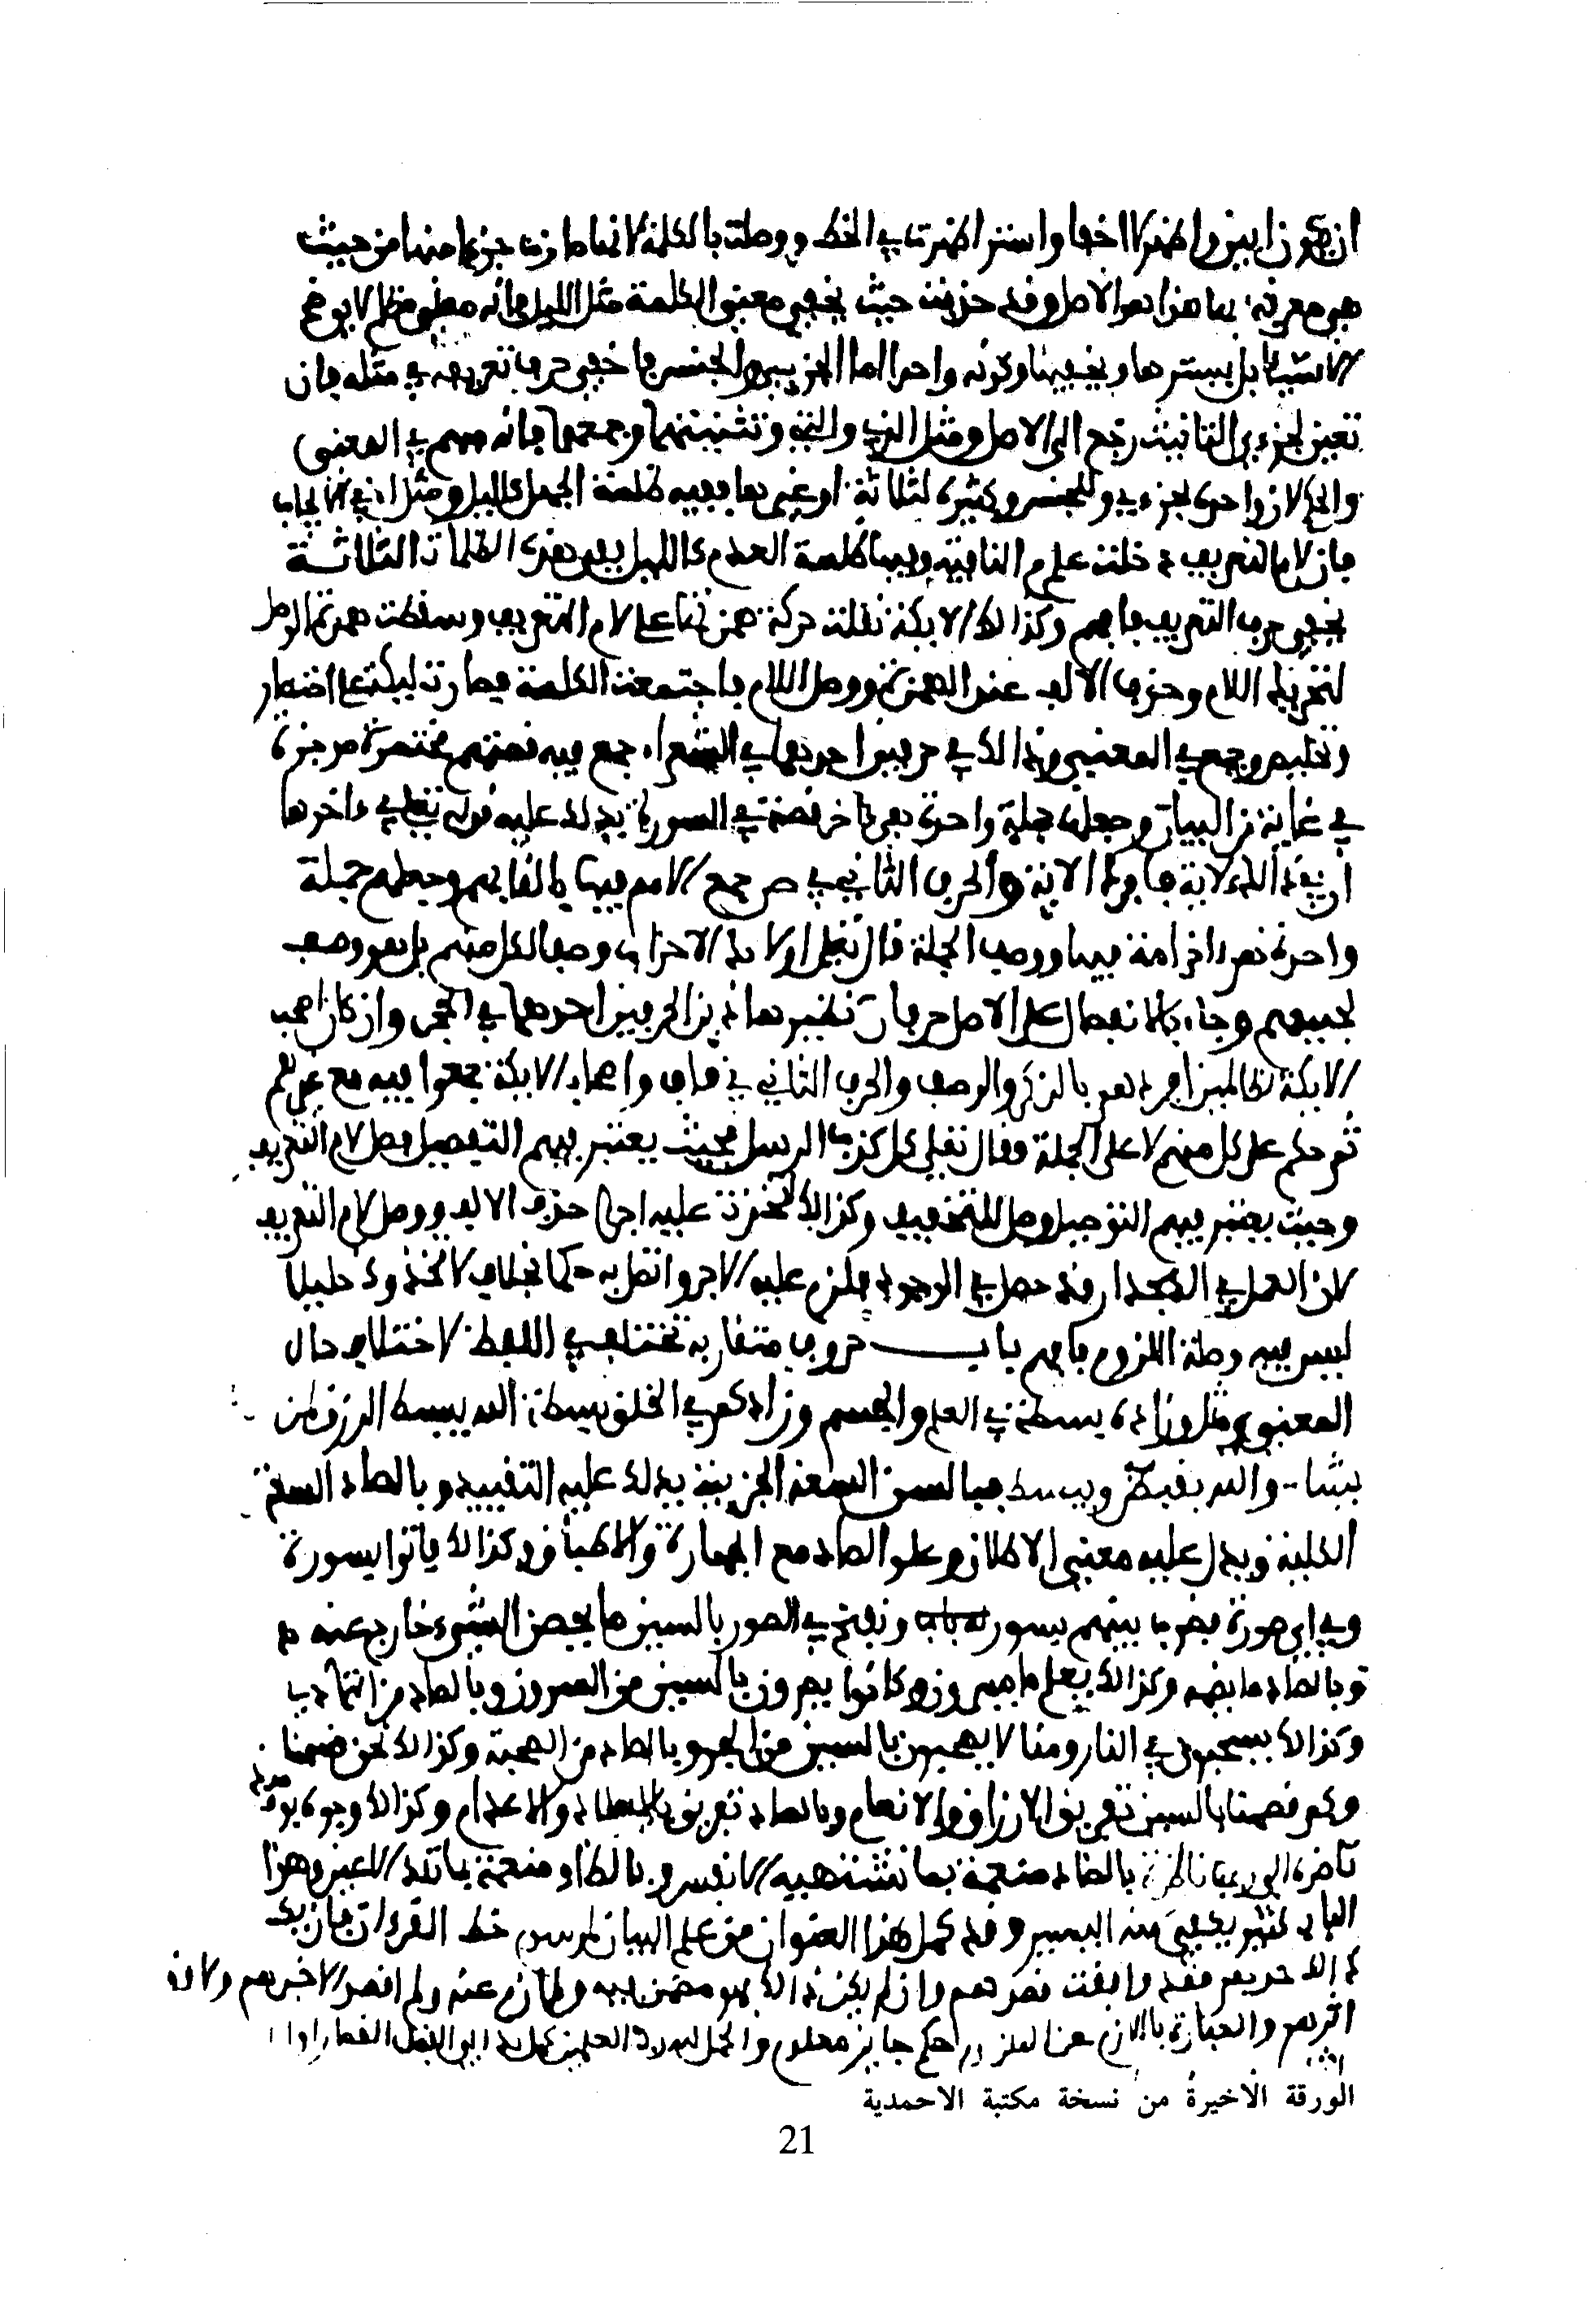 ان يكون ابين واظهر لا اخفا واستر اظهرت في الخط ووصلت بالكلمة لانها صارت جزءا منها من حيث
هي معرفة بها هذا هو الاصل وقد حذفت حيث يخفى معنى الكلمة مثل الليل فانه مظلم لا يوضح
الاشياء بل يسترها ويخفيها وكونه واحدا اما الجزءى والجنس فاخفى حرف تعريفه في مثله فان
تعين للجزءى التانيث رجع الى الاصل ومثل الذي والتي وتثنيتهما وجمعهما فانه مبهم في المعنى
والكم لان واحده للجزءى وللجنس وكثيره لثلاثة او غير ها ففيه ظلمة الجهل كالليل ومثل الـي في الايجاب
فان لام التعريف دخلت على م النافية وفيها ظلمة العدم كالليل ففي هذه الظلمات الثلاثة
يخفى حرف التعريف فافهم وكذالك الايكة نقلت حركة همزتها على لام التعريف وسقطت همزة الوصل
لتحريك اللام وحذف الالف عند الهمزة ووصل اللام فاجتمعت الكلمة فصارت ليكة على اختصار
وتلخيص وجمع في المعنى وذالك في حرفين احدهما في الشعراء جمع فيه قصتهم مختصرة موجزة
في غاية من البيان وجعلها جملة واحدة هي ءاخر قصة في السورة يدلك عليه قوله تعلى في ءاخرها
ان في ذالك لاية فافرد الاية والحرف الثاني في ص جمع الامم فيها بالقابهم وجعلهم جملة
واحدة هم اخر امة فيها ووصف الجملة قال تعلى اولائك الاحزاب وصفا لكل منهم بل هو وصف
لجميعهم وجاء بالانفصال على الاصل حرفان نظير هاذين الحرفين احدهما في الحجر وان كان اصحب
الايكة لظالمين افردهم بالذكر والوصف والحرف الثاني في قاف واصحاب الايكة جمعوا فيه مع غيرهم
ثم حكم على كل منهم لا على الجملة وقال تعلى كل كذب الرسل فحيث يعتبر فيهم التفصيل فصل لام التعريف
وحيث يعتبر فيهم التوصيل وصل للتخفيف وكذالك لتخذت عليه اجرا حذف الالف ووصل لام التعريف
لان العمل في الجدار قد حصل في الوجود فلزم عليه الاجر واتصل به حكما بخلاف لاتخذوك خليلا
ليس فيه وصلة اللزوم فافهم باب حروف متقاربة تختلف في اللفظ لاختلاف حال
المعنى مثل وزاده بسطة في العلم والجسم وزادكم في الخلق بسطة الله يبسط الرزق لمن
يشا والله يقبض ويبسط فبالسين السعة الجزءية يدلك عليه التقييد وبالصاد السعة
الكلية ويدل عليه معنى الاطلاق وعلو الصاد مع الجهارة والاطباق وكذالك فاتوا بسورة
وفي اي صورة فضرب بينهم بسور ونفخ في الصور بالسين ما يحصن الشيء خارج عنه
وبالصاد ما يضمه وكذالك يعلم ما يسرون وكانوا يصرون بالسين من السر وبالصاد من التمادي
وكذالك يسحبون في النار ومنا لا يصحبون بالسين من الجر وبالصاد من الصحبة وكذالك نحن قسمنا
وكم قصمنا بالسين تفريق الارزاق والانعام وبالصاد تفريق والاعدام وكذالك وجوه يومئذ
ناضرة الى ربها ناظرة بالضاد منعمة بما تشتهيه الانفس وبالظاء منعمة بما تلذ الاعين وهذا
الباب كثير يكفى منه اليسير وقد كمل هذا العنوان من علم البيان لمرسوم خط القرءان فان يك
ذالك حولهم فقد وافقت قصدهم وان لم يكن ذالك ولم اقصر الاخرهم ولا ن
والحمد لله رب العلمين
الورقة الاخيرة من نسخة مكتبة الاحمدية
21